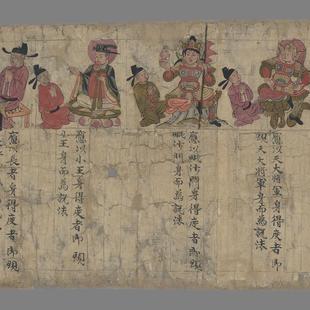 應以天大將軍身得度者即現
天大將軍身而為說法
應以毗沙門身得度者即現
毗沙門身而為說法
應以小王身得度者即現
小王身而為說法
應以長者身得度者即現